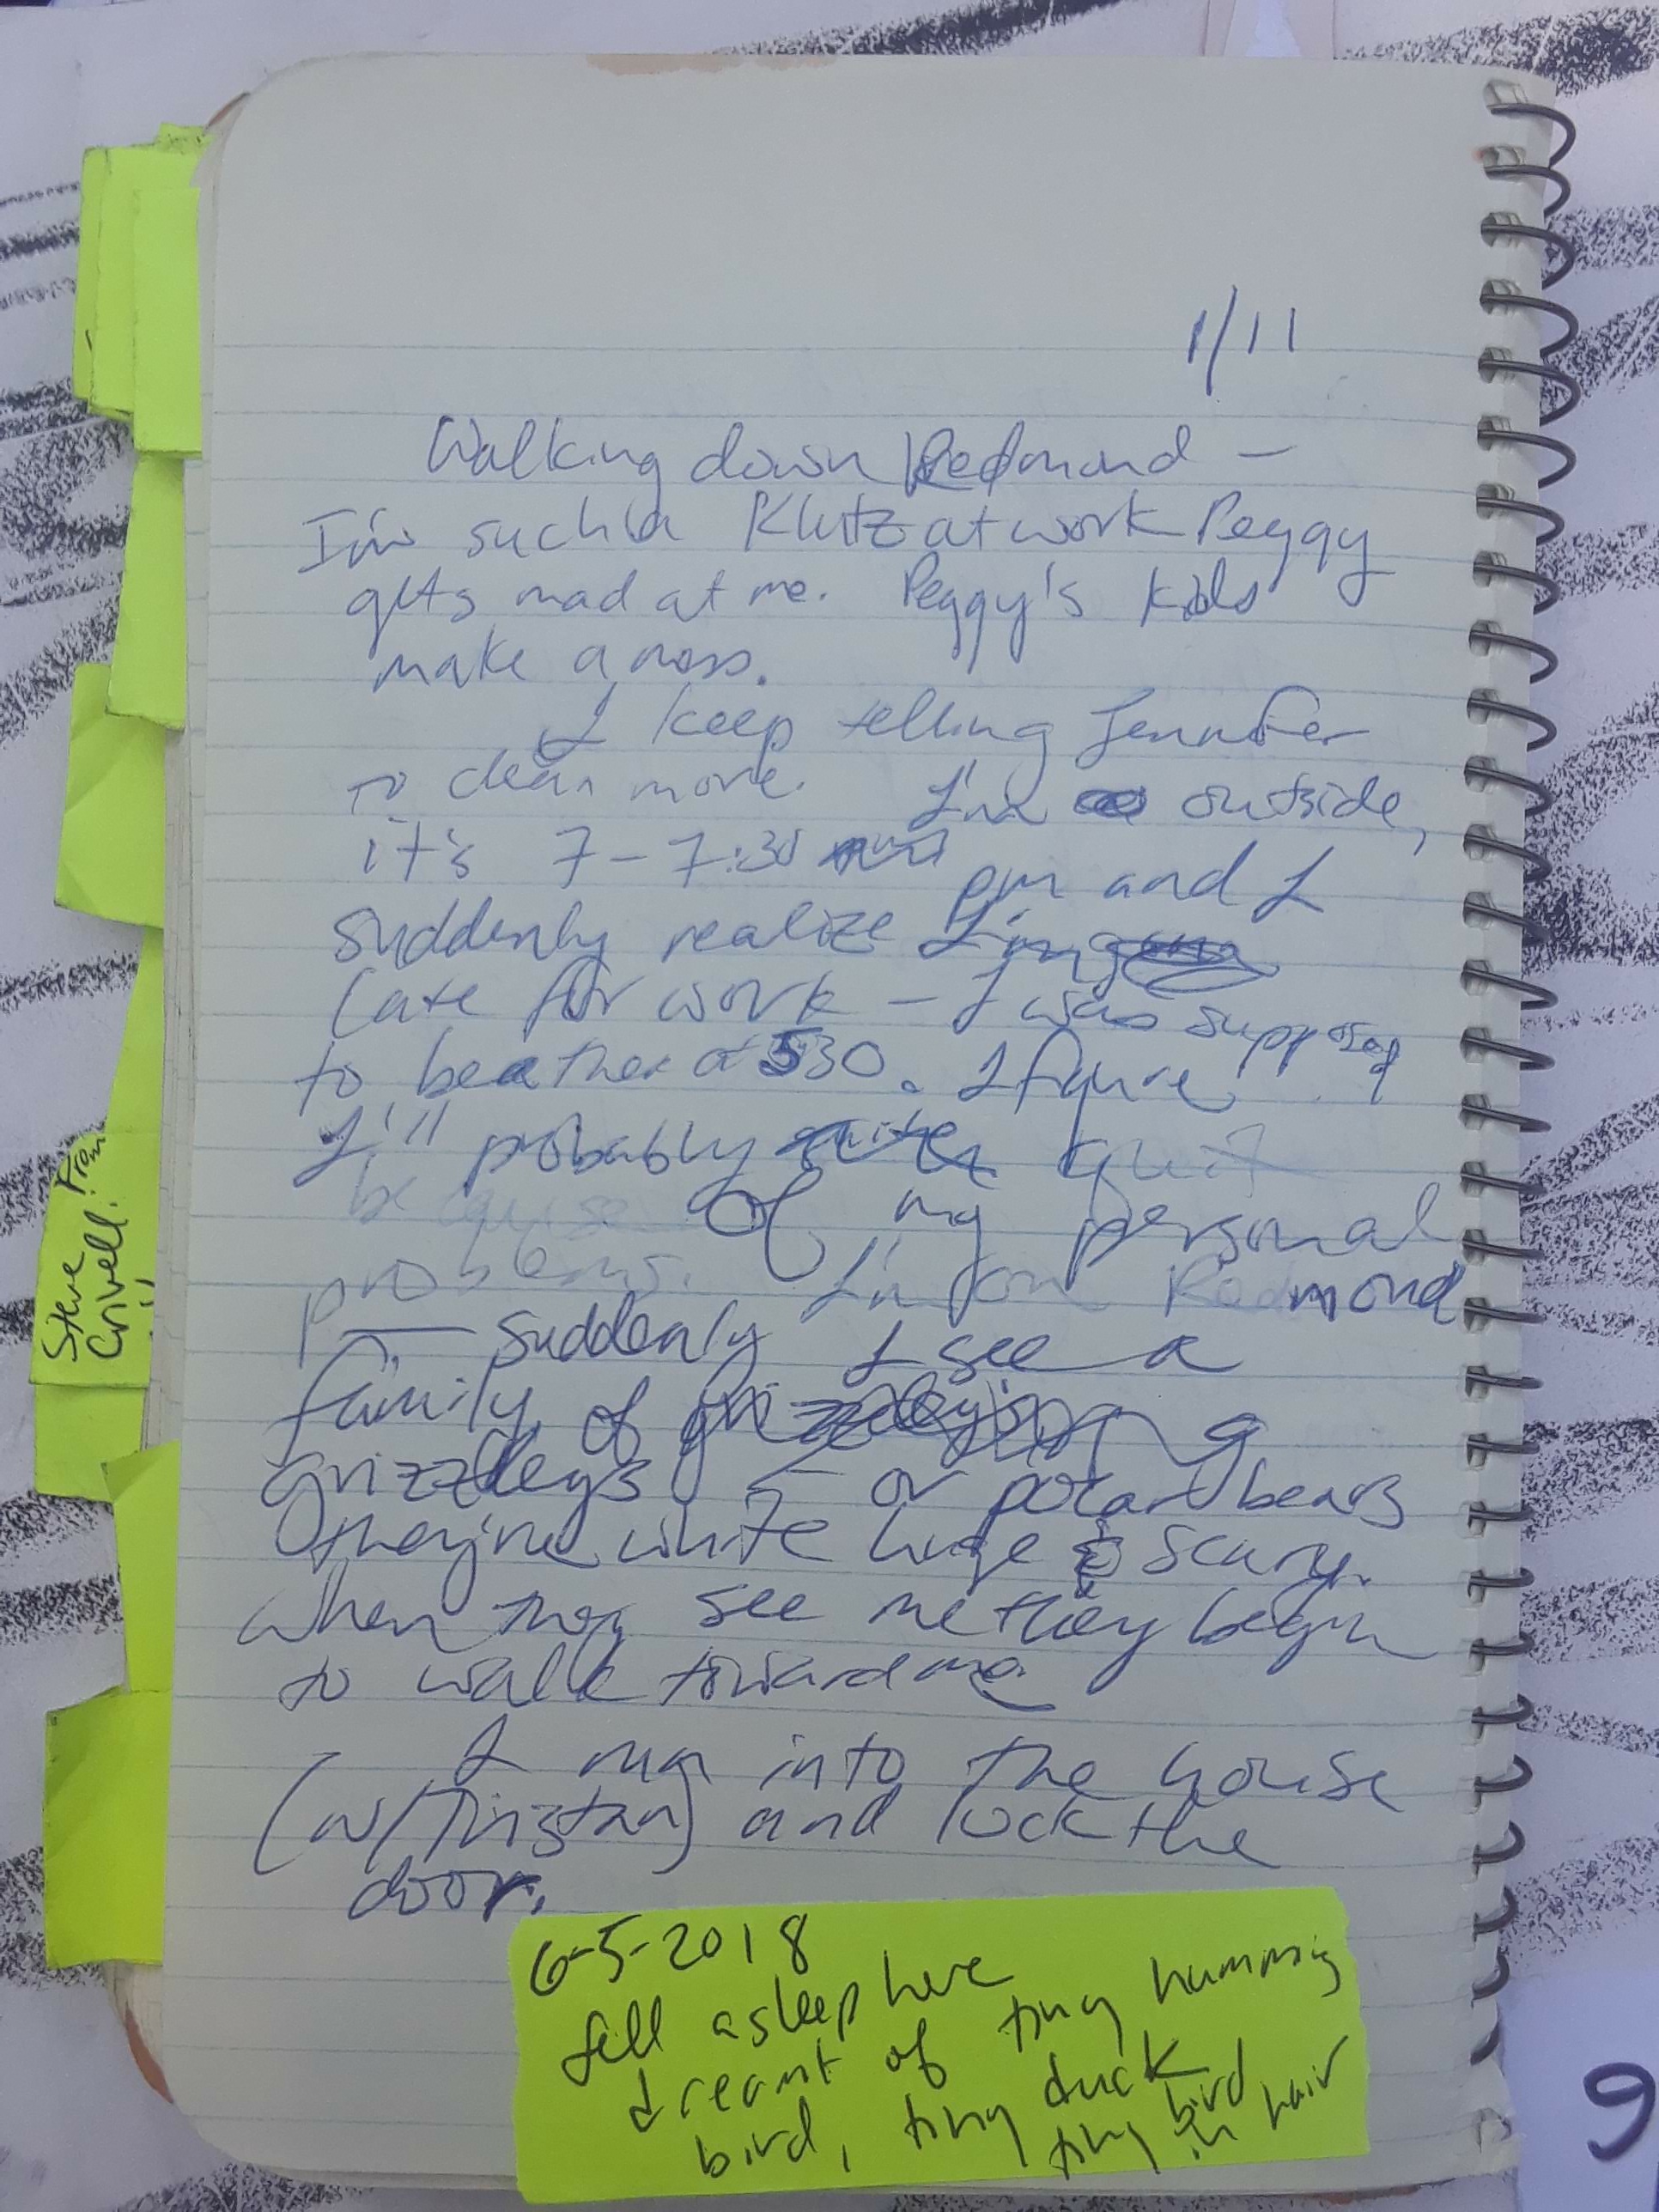 1/11
Walking down Redmond —
I'm such a Klutz at work Peggy
gets mad at me. Peggy's kids
make a mess.
I keep telling Jennifer
to clean more. I'm outside,
it's 7 - 7:30
pm and I
suddenly realize I'm
late for work — I was supposed
to be there at 530. I figure
I'll probably quit
because of my personal
problems. I'm on Redmond
— suddenly I see a
family of
grizzleys — or polar bears
They're white huge & scary.
When they see me they begin
to walk toward me
I run into the house
(w/Tristan) and lock the
door.
6-5-2018
fell asleep here
dreamt of tiny humming
bird, tiny duck
tiny bird
in hair
Steve From
Crivell!
9